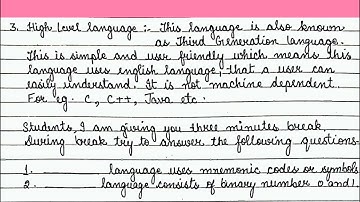 3. High Level language :- This language is also known
as Third Generation language.
This is simple and user friendly which means this
language uses english language, that a user can
easily understand. It is not machine dependent.
For eg. C, C++, Java etc.
Students, I am giving you three minutes break.
During break try to answer the following questions-
1. ________ language uses mnemonic codes or symbols
2. ________ language consists of binary number 0 and 1